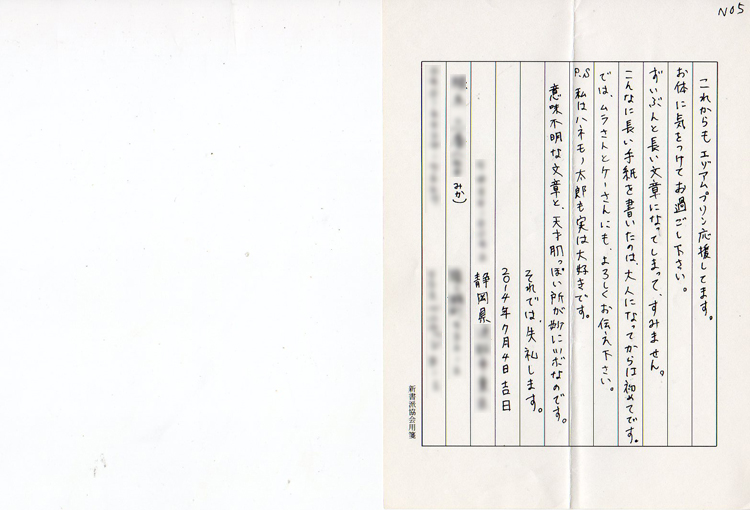 NO5
これからもエリアムプリン応援してます。
お体に気をつけてお過ごし下さい。
ずいぶんと長い文章になってしまって、すみません。
こんなに長い手紙を書いたのは、大人になってからは初めてです。
では、ムラさんとケーさんにも、よろしくお伝え下さい。
P.S 私はハネモノ太郎も実は大好きです。
意味不明な文章と、天才肌っぽい所が妙にツボなのです。
それでは、失礼します。
2014年7月4日吉日
静岡県
みか)
新書派協会用箋